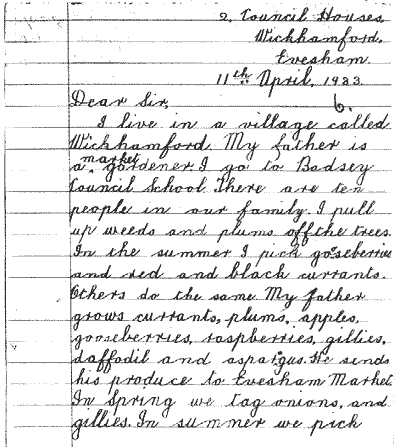 2. Council Houses.
Wickhamford.
Evesham.
11th April, 1933.
6.
Dear Sir,
I live in a village called
Wickhamford. My father is
a market gardener. I go to Badsey
Council School. There are ten
people in our family. I pull
up weeds and plums off the trees.
In the summer I pick gooseberries
and red and black currants.
Others do the same My father
grows currants, plums, apples,
gooseberries, raspberries, gillies,
daffodil and aspagus. He sends
his produce to Evesham Market.
In Spring we tag onions, and
gillies. In summer we pick